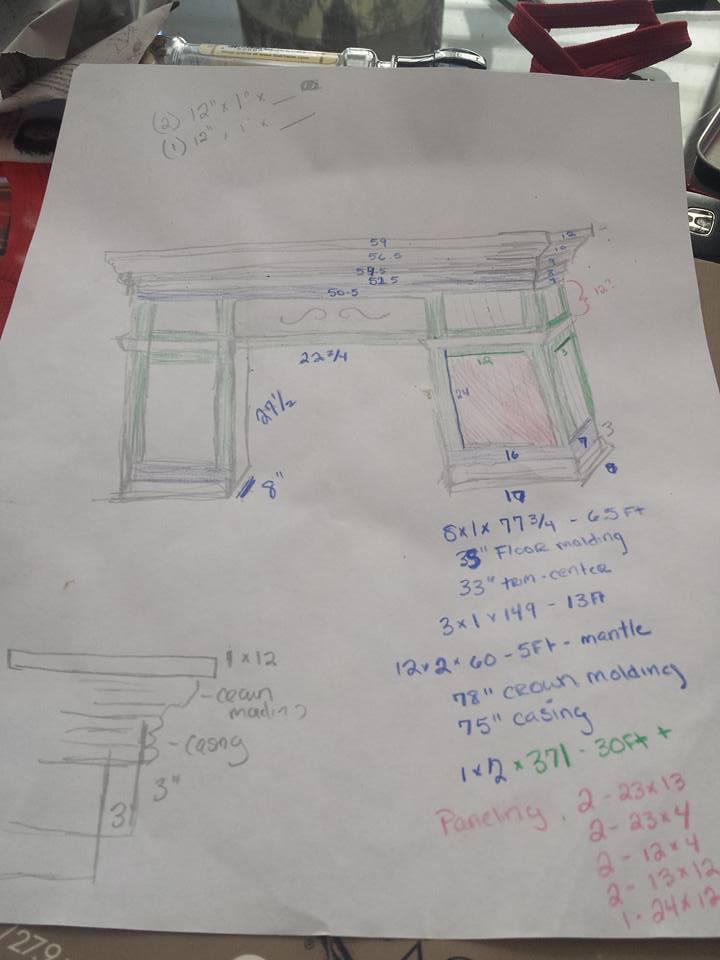 (2) 12" x 1" x __
(1) 12" x 1" x __
59
12
56.5
10
54.5
9
52.5
50.5
12"
22 3/4
12
3
27 1/2
24
3
7
16
8"
8
17
8x1x 77 3/4 - 6.5 Ft
35" Floor molding
33" trim-center
3x1x149 - 13Ft
12x2x60 - 5Ft - mantle
78" crown molding
75" casing
1x12 x 371 - 30Ft +
Paneling. 2 - 23x13
2 - 23x4
2 - 12x4
2 - 13x12
1 - 24x12
1 x 12
- crown
molding
- casing
3"
3"
127.9